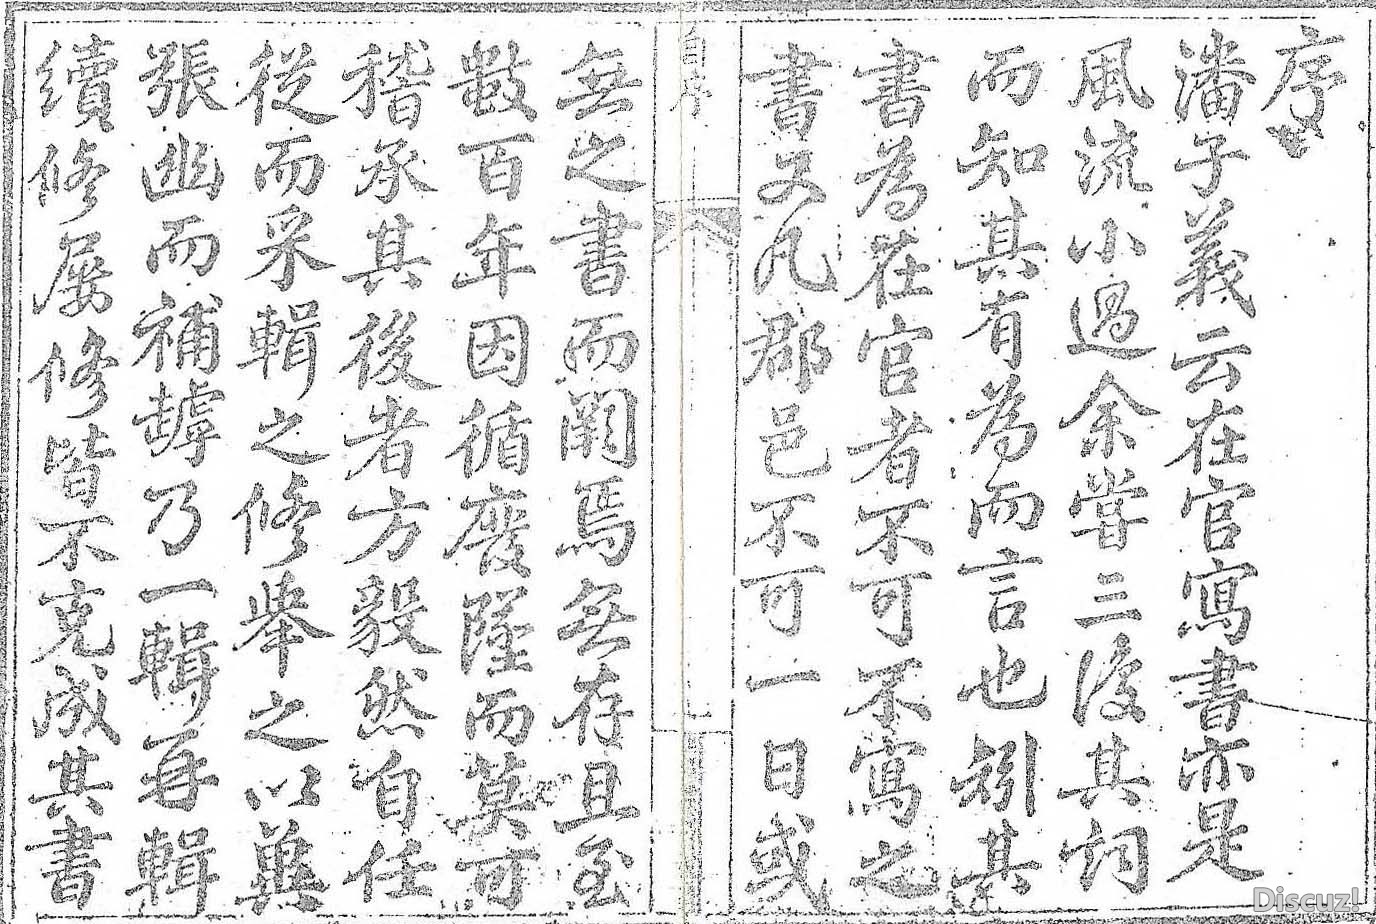 序
潘子義云在官寫書亦是
風流小過余嘗三復其詞
而知其有為而言也矧其
書為在官者不可不寫之
書又凡郡邑不可一日或
自序
無之書而闕焉無存且至
數百年因循廢墜而莫可
稽承其後者方毅然自任
從而采輯之修舉之以冀
張幽而補罅乃一輯再輯
續修屢修皆不克成其書
Discuz!